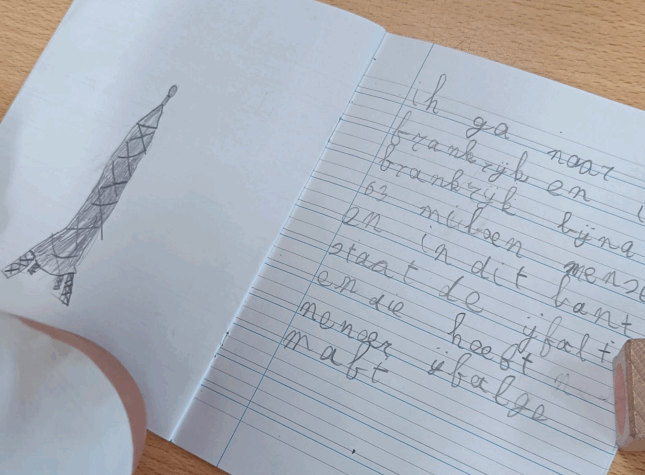 ih ga naar
frankrijk en i
frankrijk bijna
63 miljoen mense
en in dit lant
staat de ijfalt
en die heeft
meneer ijfalge
maakt